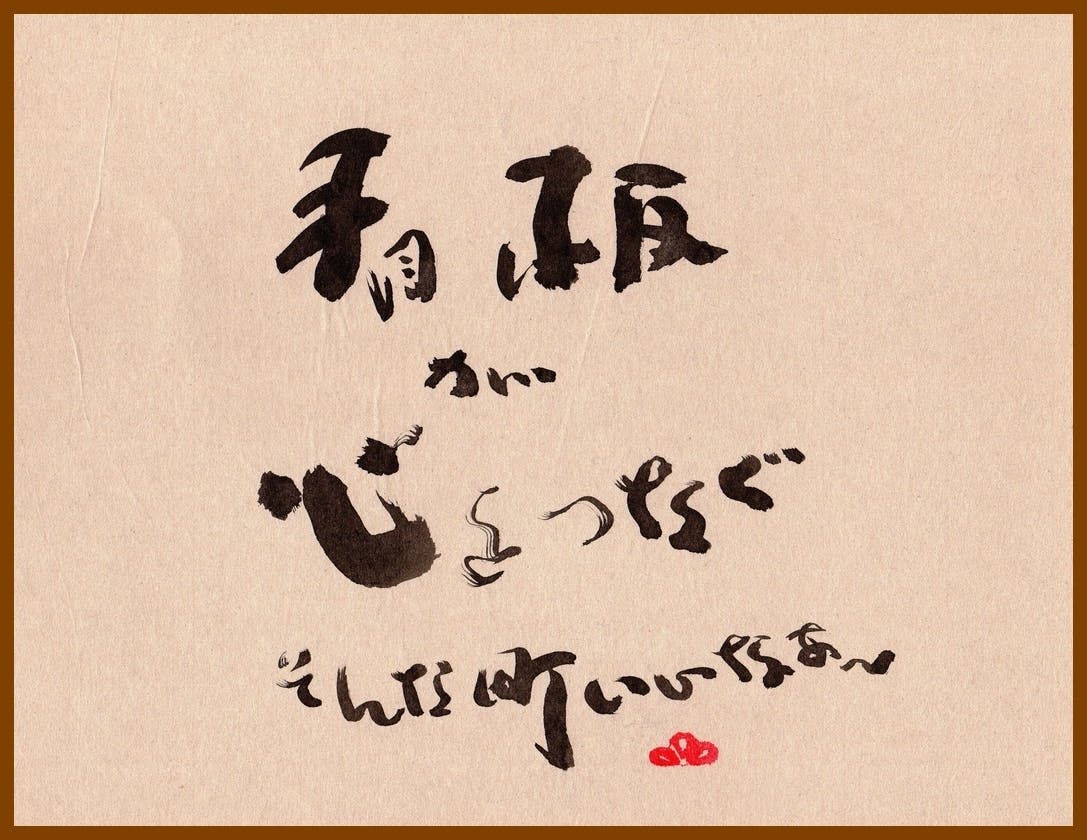 看板
が
心をつなぐ
そんな町いいなぁ〜